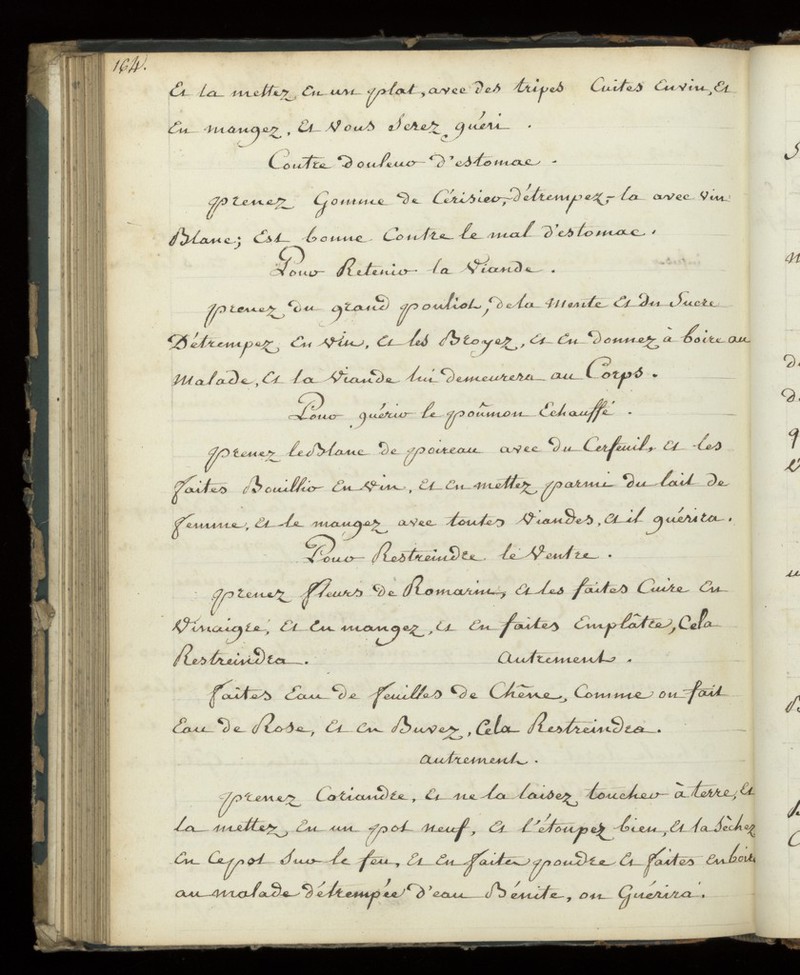 164.
Et la mettez En un plat, avec Des tripes Cuites Envin, Et
En mangez, Et Vous Serez guéri .
Contre Douleur D'estomac .
prenez Gomme De Cérisier, Détrempez-la avec Vin
Blanc; Est bonne Contre le mal D'estomac .
Pour Retenir la Viande .
prenez Du grand pouliot, De la Mente Et Du Sucre
Détrempez En Vin, Et les Broyez, Et En Donnez à boire au
Malade, Et la Viande lui Demeurera au Corps .
Pour guérir le poûmon Echauffé .
prenez leBlanc De poireau avec Du Cerfeuil, Et les
faites Bouillir En Vin, Et En mettez parmi Du lait De
femme, Et le mangez avec toutes Viandes, Et il guérira .
Pour Restreindre le Ventre .
prenez fleurs De Romarin, Et les faites Cuire En
Vinaigre, Et En mangez, Et En faites Emplâtre, Cela
Restreindra . Autrement .
faites Eau De feuilles De Chêne, Comme on fait
Eau De Rose, Et En Buvez, Cela Restreindra .
Autrement .
prenez Coriandre, Et ne la laisez toucher à terre, Et
la mettez En un pot neuf, Et l'étoupez bien, Et la Sèchez
En Cepot Sur le feu, Et En faites poudre Et faites En boire
au malade Détrempée D'eau Bénite, on Guérira .